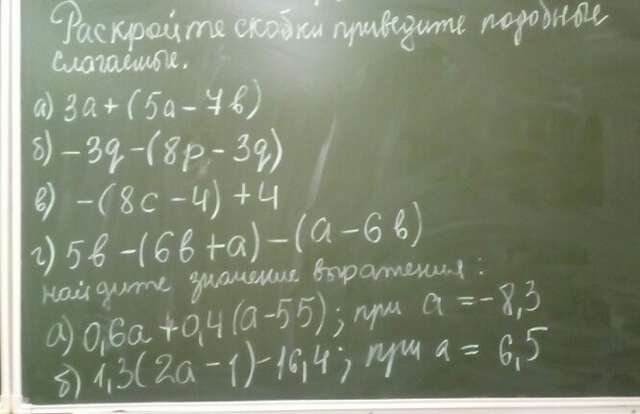 Раскройте скобки приведите подобные
слагаемые.
а) 3a + (5a - 7b)
б) -3q - (8p - 3q)
в) -(8c - 4) + 4
г) 5b - (6b + a) - (a - 6b)
найдите значение выражения:
а) 0,6a + 0,4(a - 55); при a = -8,3
б) 1,3(2a - 1) - 16,4; при a = 6,5